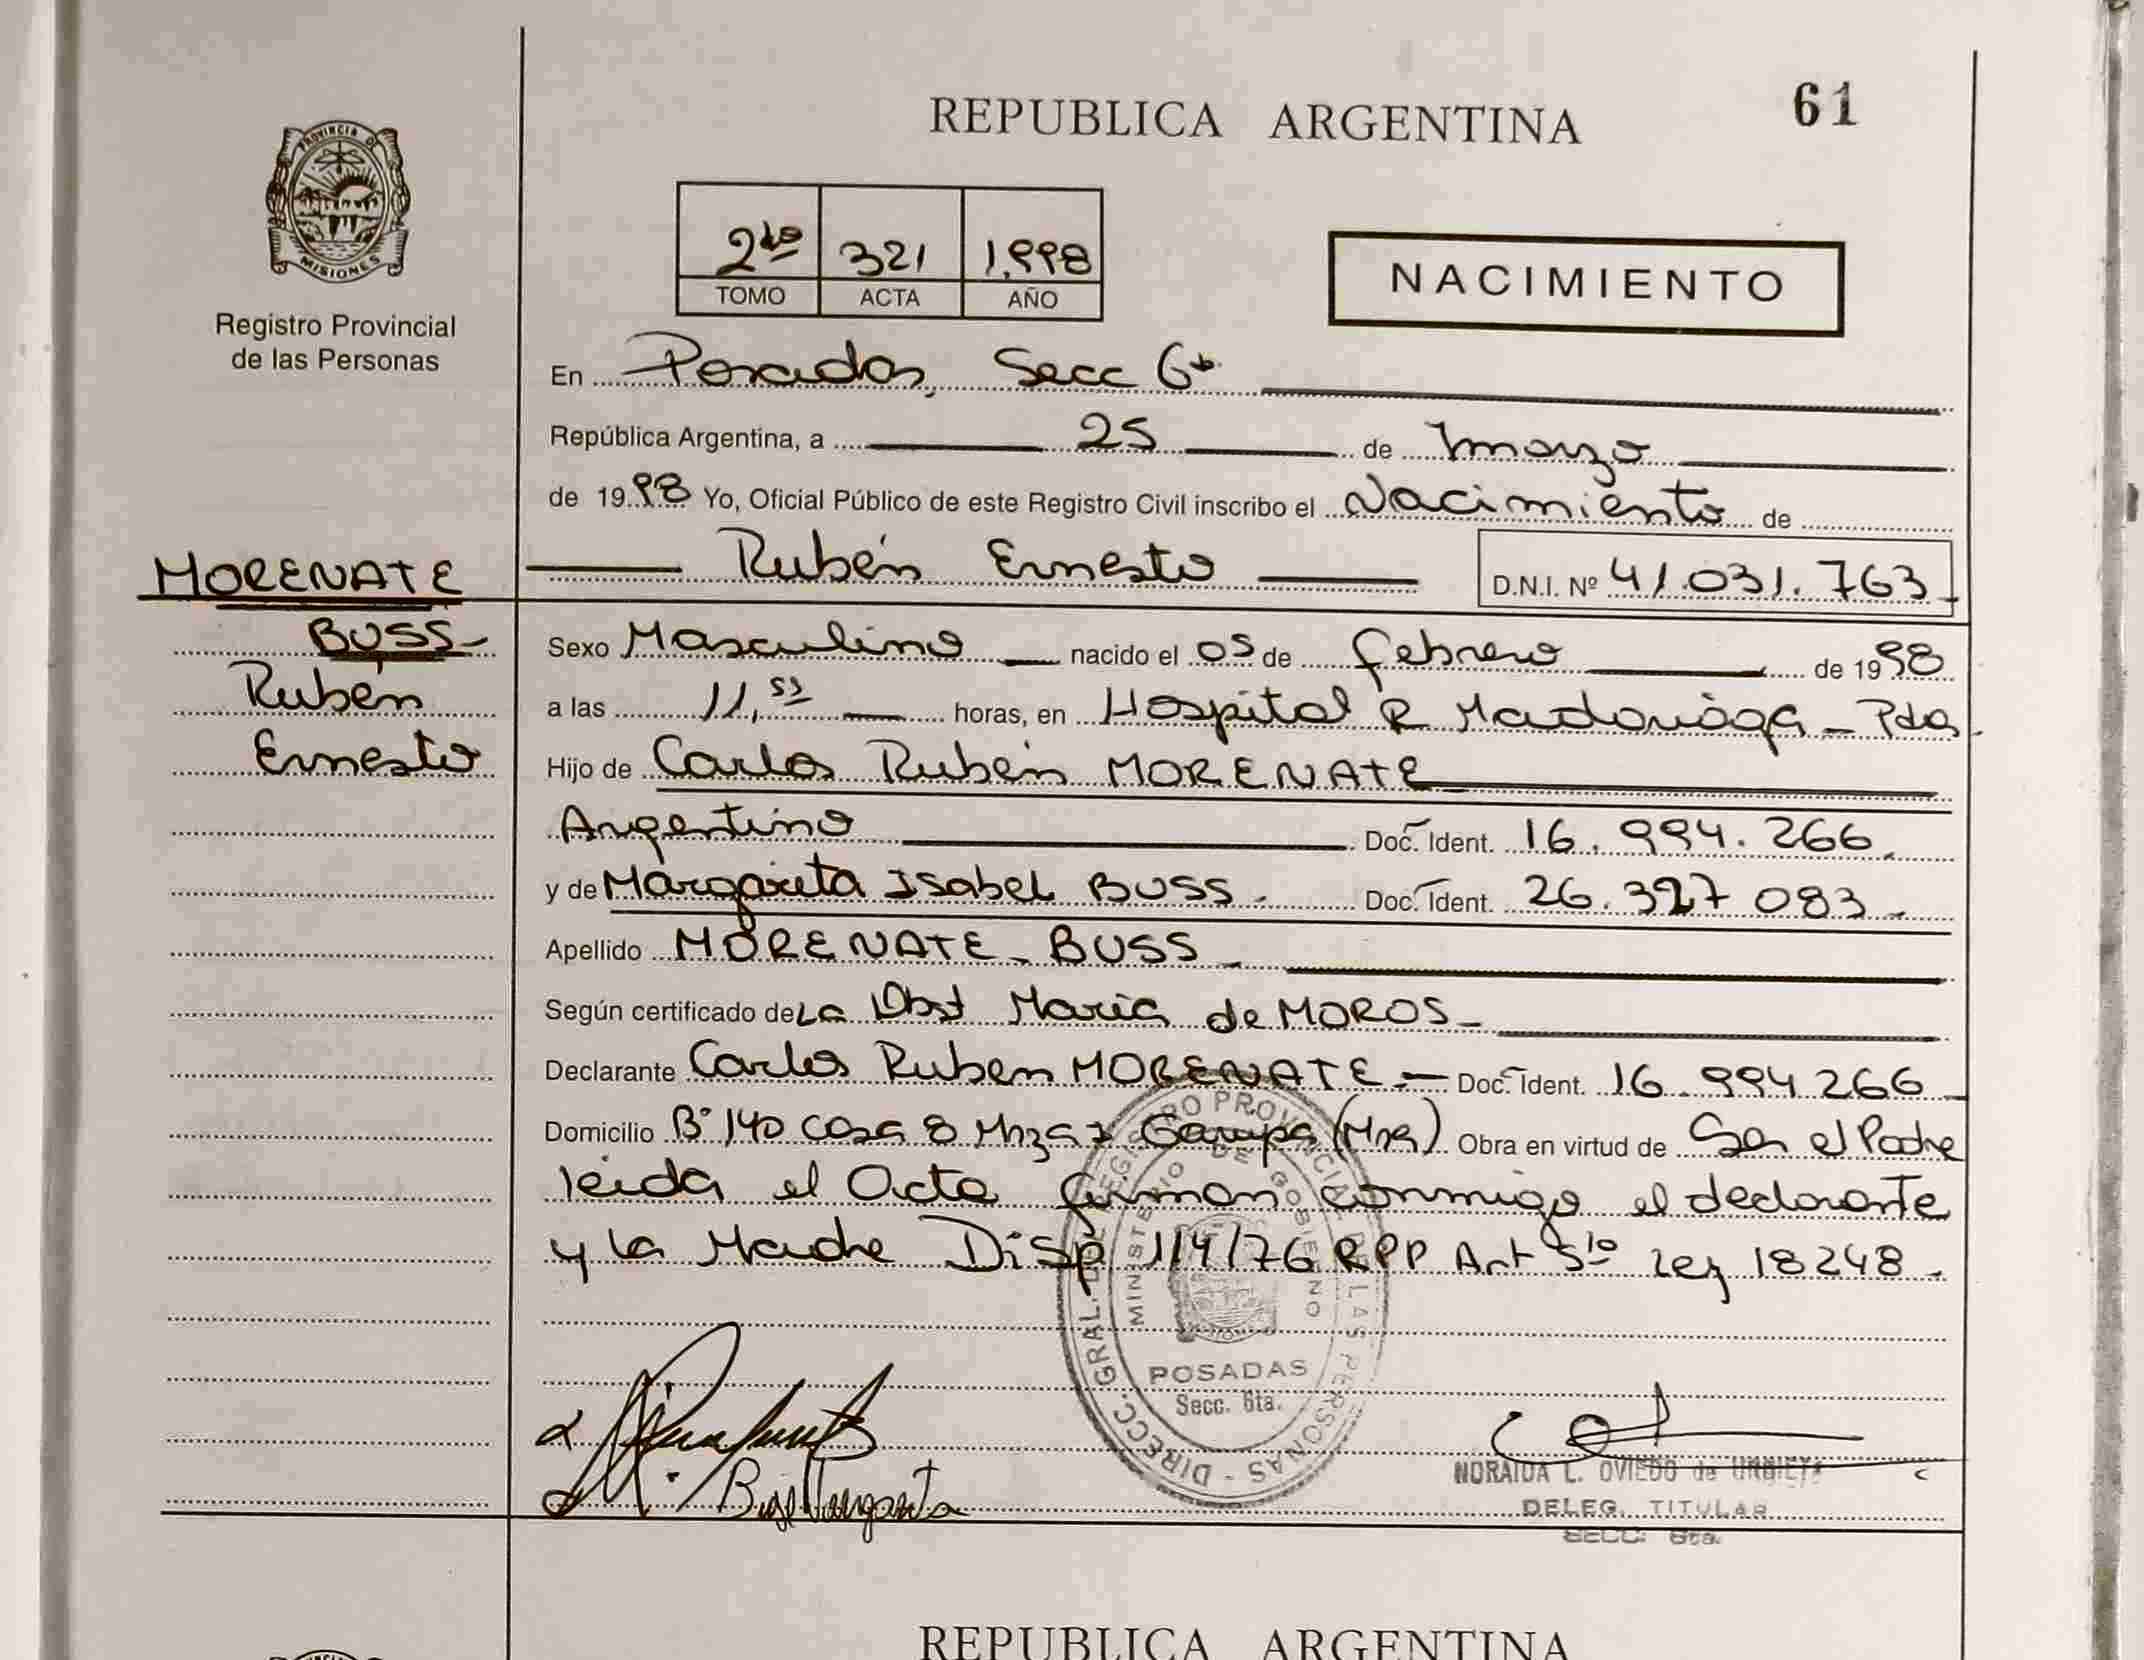 REPUBLICA ARGENTINA
61
PROVINCIA DE
MISIONES
Registro Provincial
de las Personas
2do 321 1.998
TOMO ACTA AÑO
NACIMIENTO
En Posadas, Secc 6ta
República Argentina, a 25 de marzo
de 1998 Yo, Oficial Público de este Registro Civil inscribo el Nacimiento de
Rubén Ernesto D.N.I. Nº 41.031.763
MORENATE
BUSS
Rubén
Ernesto
Sexo Masculino nacido el 05 de febrero de 1998
a las 11,53 horas, en Hospital R Madariaga - Pdas
Hijo de Carlos Rubén MORENATE
Argentino Doc. Ident. 16.994.266
y de Margarita Isabel BUSS Doc. Ident. 26.327 083
Apellido MORENATE - BUSS
Según certificado de La Obst Maria de MOROS
Declarante Carlos Ruben MORENATE Doc. Ident. 16.994 266
Domicilio B° 140 casa 8 Mnza I Garupa (Mnes) Obra en virtud de Ser el Padre
leida el Acta firman conmigo el declarante
y la Madre Disp 1/4/76 RPP Art 5to Ley 18248
DIRECC. GRAL. DEL REGISTRO PROVINCIAL DE LAS PERSONAS
MINISTERIO DE GOBIERNO
POSADAS
Secc. 6ta.
Buss Margarita
NORAIDA L. OVIEDO de URBIETA
DELEG. TITULAR
SECC: 6ta.
REPUBLICA ARGENTINA